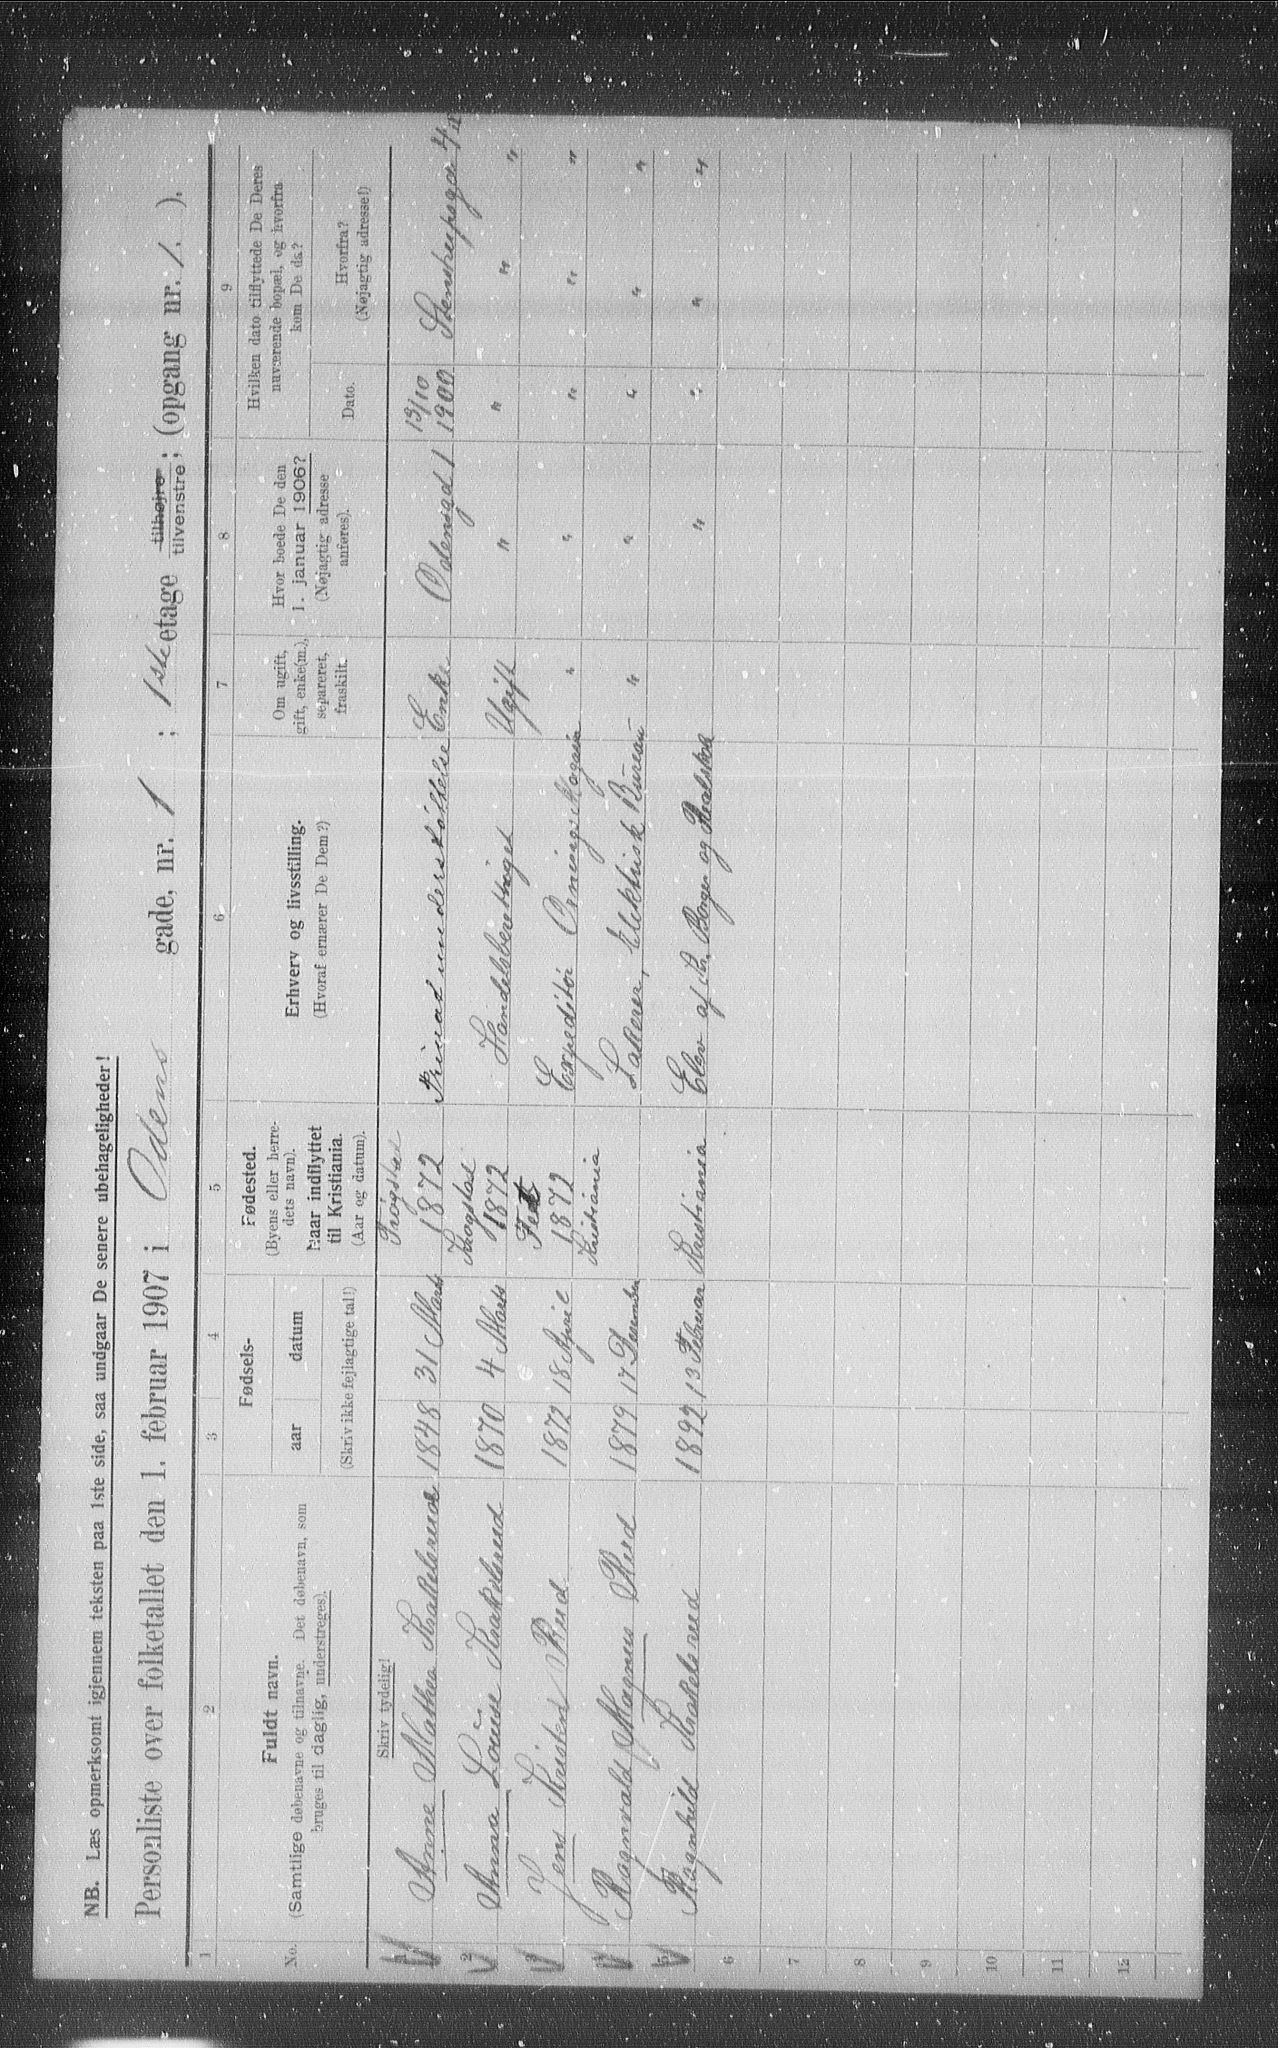 NB. Læs opmerksomt igjennem teksten paa 1ste side, saa undgaar De senere ubehageligheder!
Personliste over folketallet den 1. februar 1907 i Odens gade, nr. 1 ; 1ste etage tilhøjre tilvenstre; (opgang nr. 1. ).
1
2
3
4
5
6
7
8
9
No.
Fuldt navn.
(Samtlige døbenavne og tilnavne. Det døbenavn, som
bruges til daglig, understreges).
Fødsels-
aar
datum
(Skriv ikke fejlagtige tal!)
Fødested.
(Byens eller herre-
dets navn).
Naar indflyttet
til Kristiania.
(Aar og datum).
Erhverv og livsstilling.
(Hvoraf ernærer De Dem?)
Om ugift,
gift, enke(m.),
separeret,
fraskilt.
Hvor boede De den
1. januar 1906?
(Nøjagtig adresse
anføres).
Hvilken dato tilflyttede De Deres
nuværende bopæl, og hvorfra
kom De da?
Dato.
Hvorfra?
(Nøjagtig adresse!)
Skriv tydelig!
1 Anne Mathea Krakelsrud 1848 31 Marts Trøgstad 1872 Privat understøttelse Enke Odensgd 1 19/10 1900 Stenstrupsgd
2 Anna Louise Krakelsrud 1870 4 Marts Trøgstad 1872 Handelsberettiget Ugift " " " "
3 Jens Kristian Rud 1872 18 April 1872 Expeditør " " " " "
4 Ragnvald Magnus Rud 1879 17 December Kristiania Lakerer, Elektrisk Bureau " " " " "
5 Ragnhild Krakelsrud 1892 13 Februar Kristiania Elev af Kr. Borger og Realskole " " " "
6
7
8
9
10
11
12